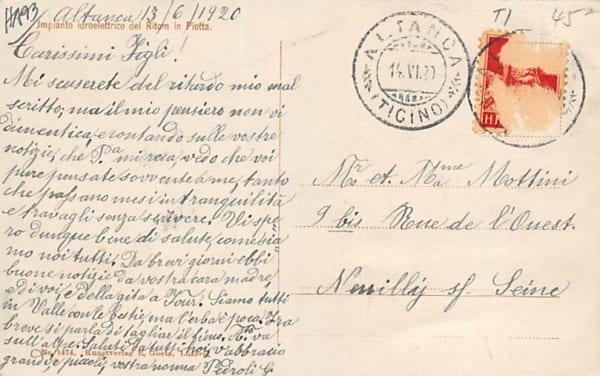 HA93
Altanca 13/6/1920
Impianto idroelettrico del Ritom in Piotta.
Carissimi Figli!
Mi scuserete del ritardo mio mal
scritto, ma il mio pensiero non vi
dimentica, e contando sulle vostre
notizie, che vedo che voi
pure pensate sovvente a me, tanto
che passano mesi in tranquilità
e travagli senza scrivere. Vi spe
ro dunque bene di salute come sia
mo noi tutti. Da brevi giorni ebbi
buone notizie da vostra cara madre,
e di voi, e della gita a Tour. Siamo tutti
in Valle con le bestie, ma l'erba è poca. Fra
breve si parla di tagliar il fieno. va
sull'alpe. Saluti da tutti noi, v'abbracio
grandi e piccoli, vostra nonna Pedroli C
No. 1474. Kunstverlag E. Goetz, Luzern
T1 45
ALTANCA
14.VI.20
(TICINO)
H
Mr et Mme Mottini
9 bis Rue de l'Ouest.
Neuilly sf. Seine